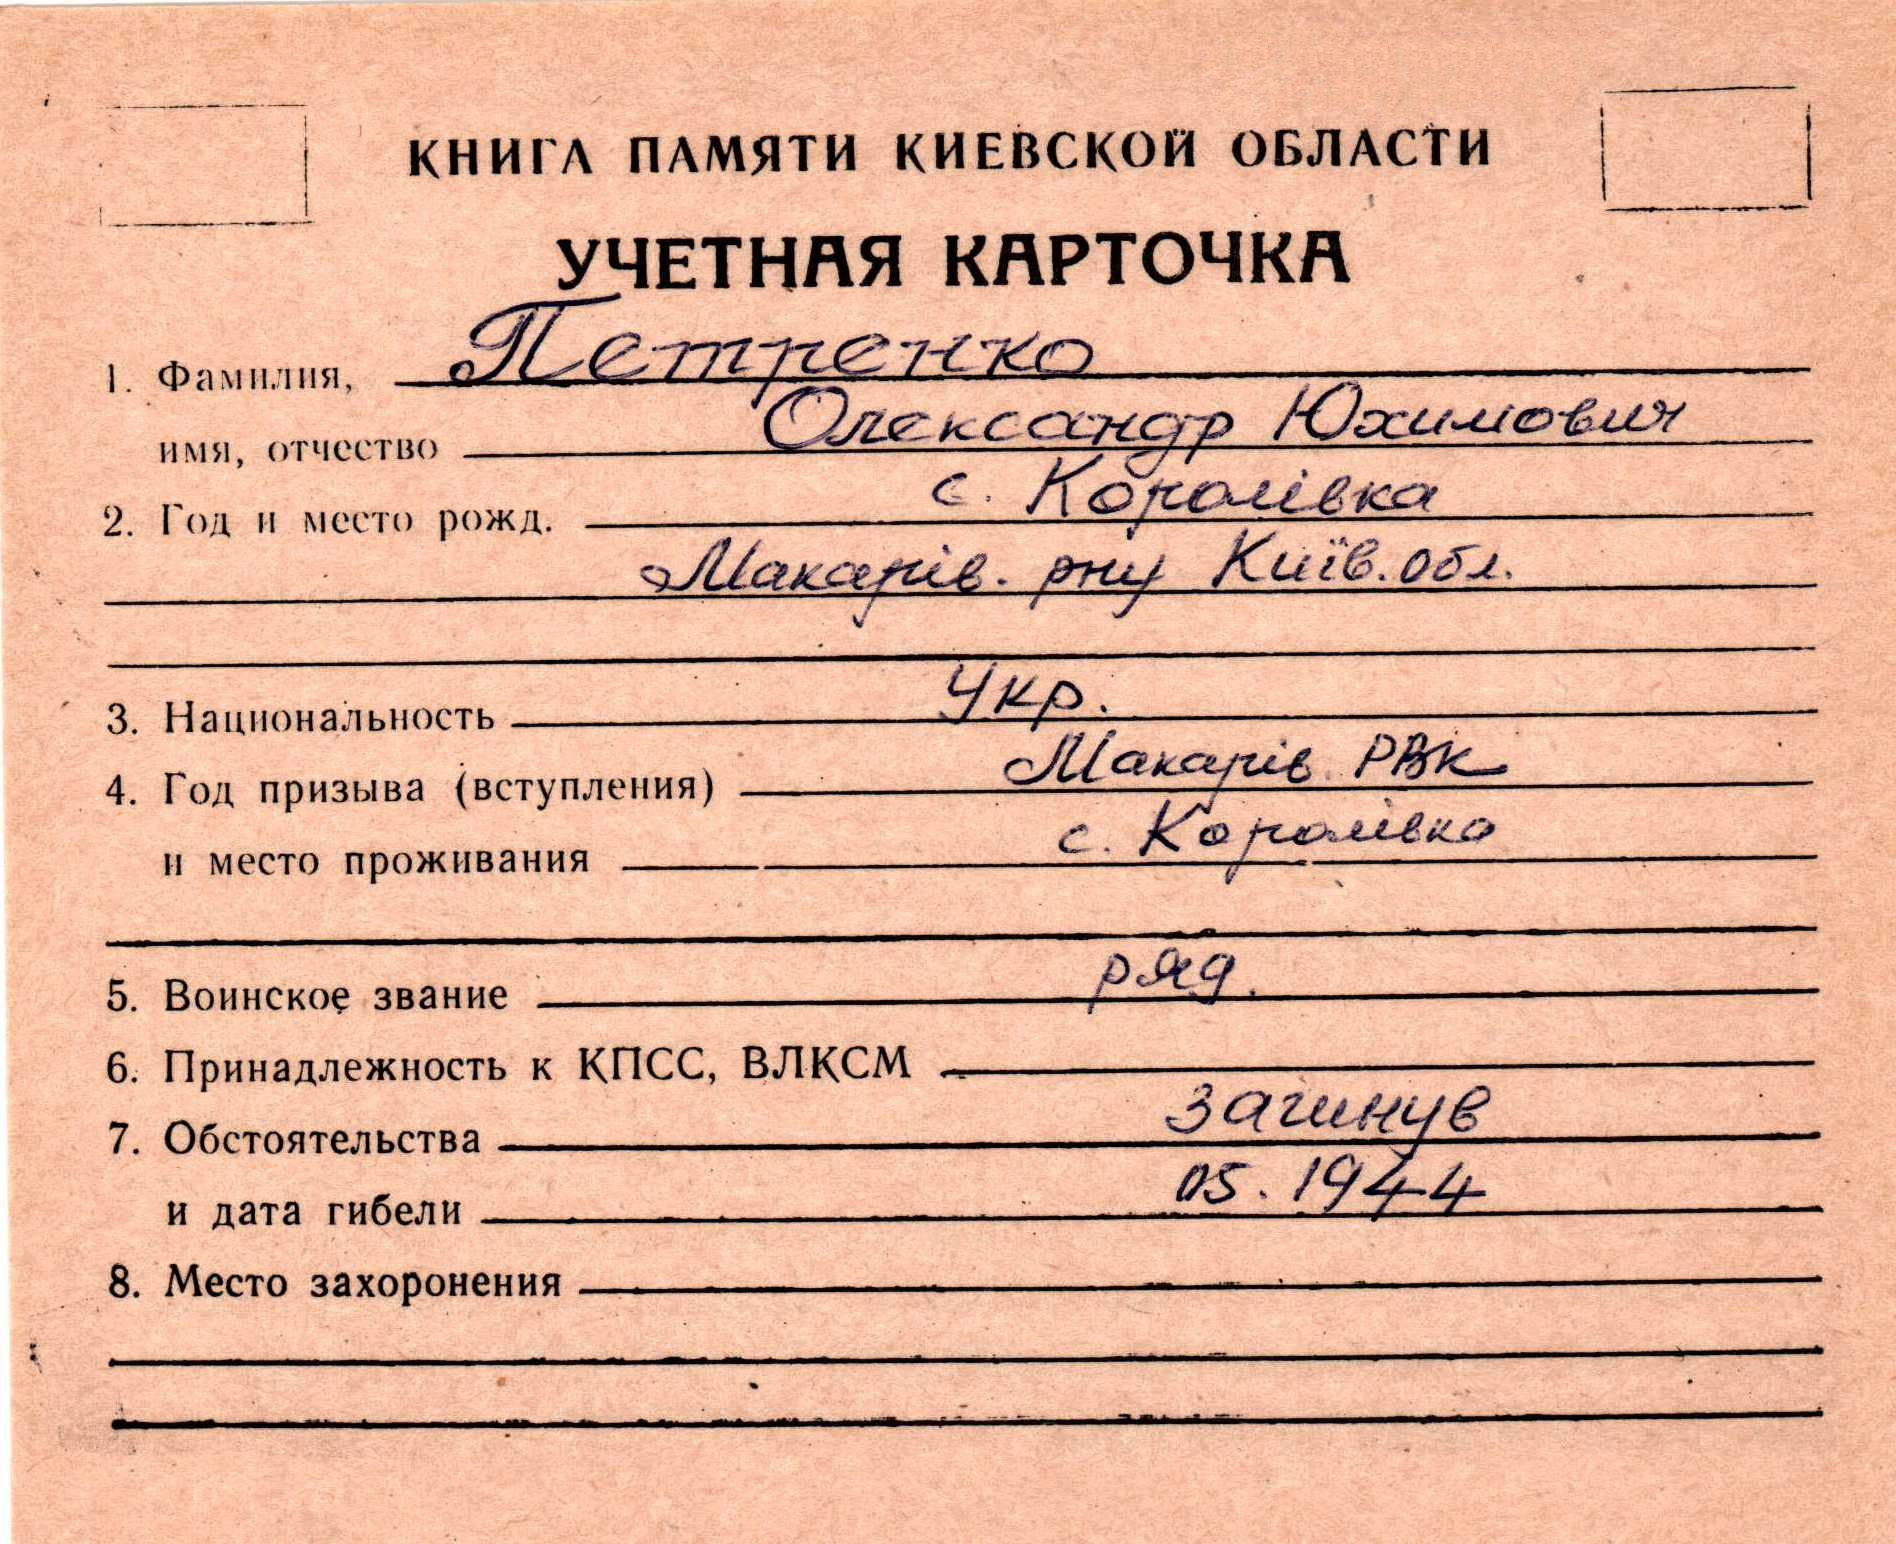 КНИГА ПАМЯТИ КИЕВСКОЙ ОБЛАСТИ
УЧЕТНАЯ КАРТОЧКА
1. Фамилия, Петренко
имя, отчество Олександр Юхимович
2. Год и место рожд. с. Королівка
Макарів. рну Київ. обл.
3. Национальность Укр.
4. Год призыва (вступления) Макарів. РВК
и место проживания с. Королівка
5. Воинское звание ряд.
6. Принадлежность к КПСС, ВЛКСМ
7. Обстоятельства загинув
и дата гибели 05. 1944
8. Место захоронения